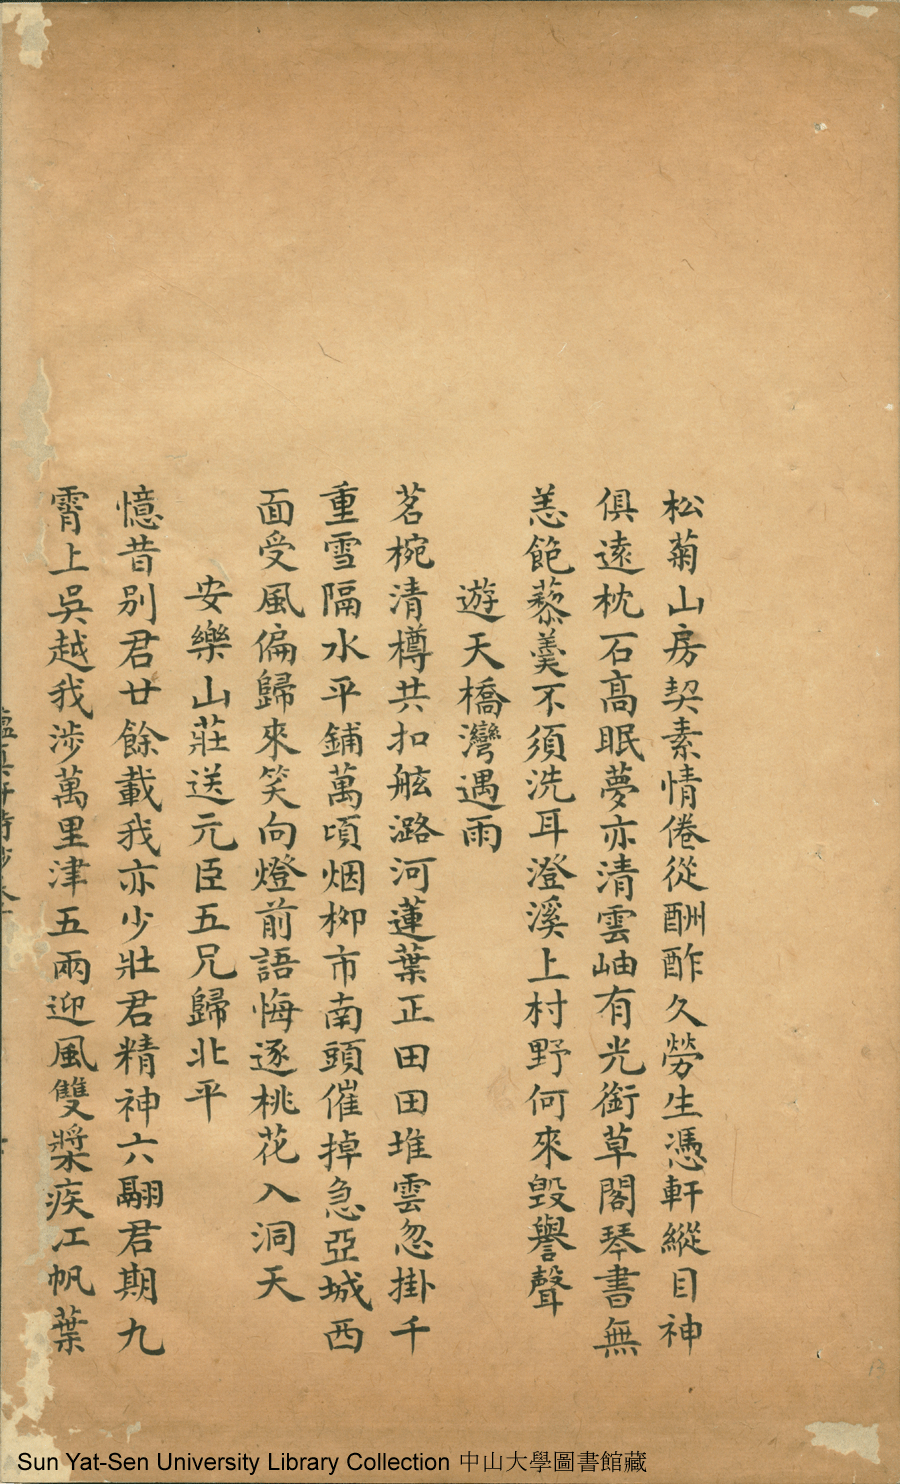 松菊山房契素情倦從酬酢久勞生憑軒縱目神
俱遠枕石高眠夢亦清雲岫有光銜草閣琴書無
恙飽藜羹不須洗耳澄溪上村野何來毀譽聲
遊天橋灣遇雨
茗椀清樽共扣舷潞河蓮葉正田田堆雲忽掛千
重雪隔水平鋪萬頃烟柳市南頭催掉急亞城西
面受風偏歸來笑向燈前語悔逐桃花入洞天
安樂山莊送元臣五兄歸北平
憶昔別君廿餘載我亦少壯君精神六翮君期九
霄上吳越我涉萬里津五兩迎風雙槳疾江帆葉
Sun Yat-Sen University Library Collection 中山大學圖書館藏